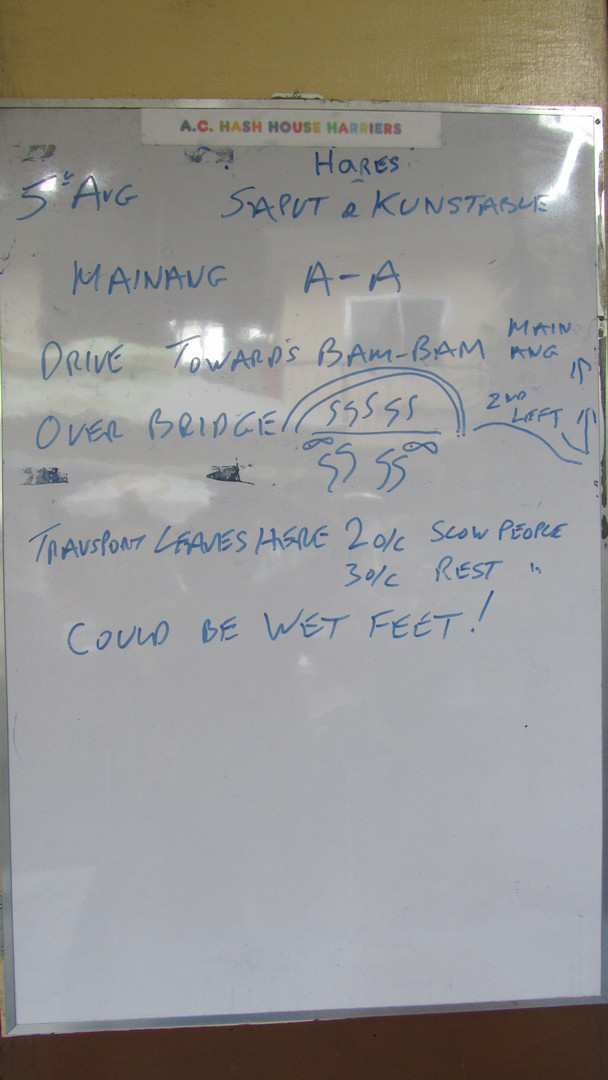 A.C. HASH HOUSE HARRIERS
HARES
5th AUG SAPUT & KUNSTABLE
MAINANG A-A
DRIVE TOWARD'S BAM-BAM MAIN ANG
OVER BRIDGE 2ND LEFT
TRANSPORT LEAVES HERE 2 O/C SLOW PEOPLE
3 O/C REST "
COULD BE WET FEET!